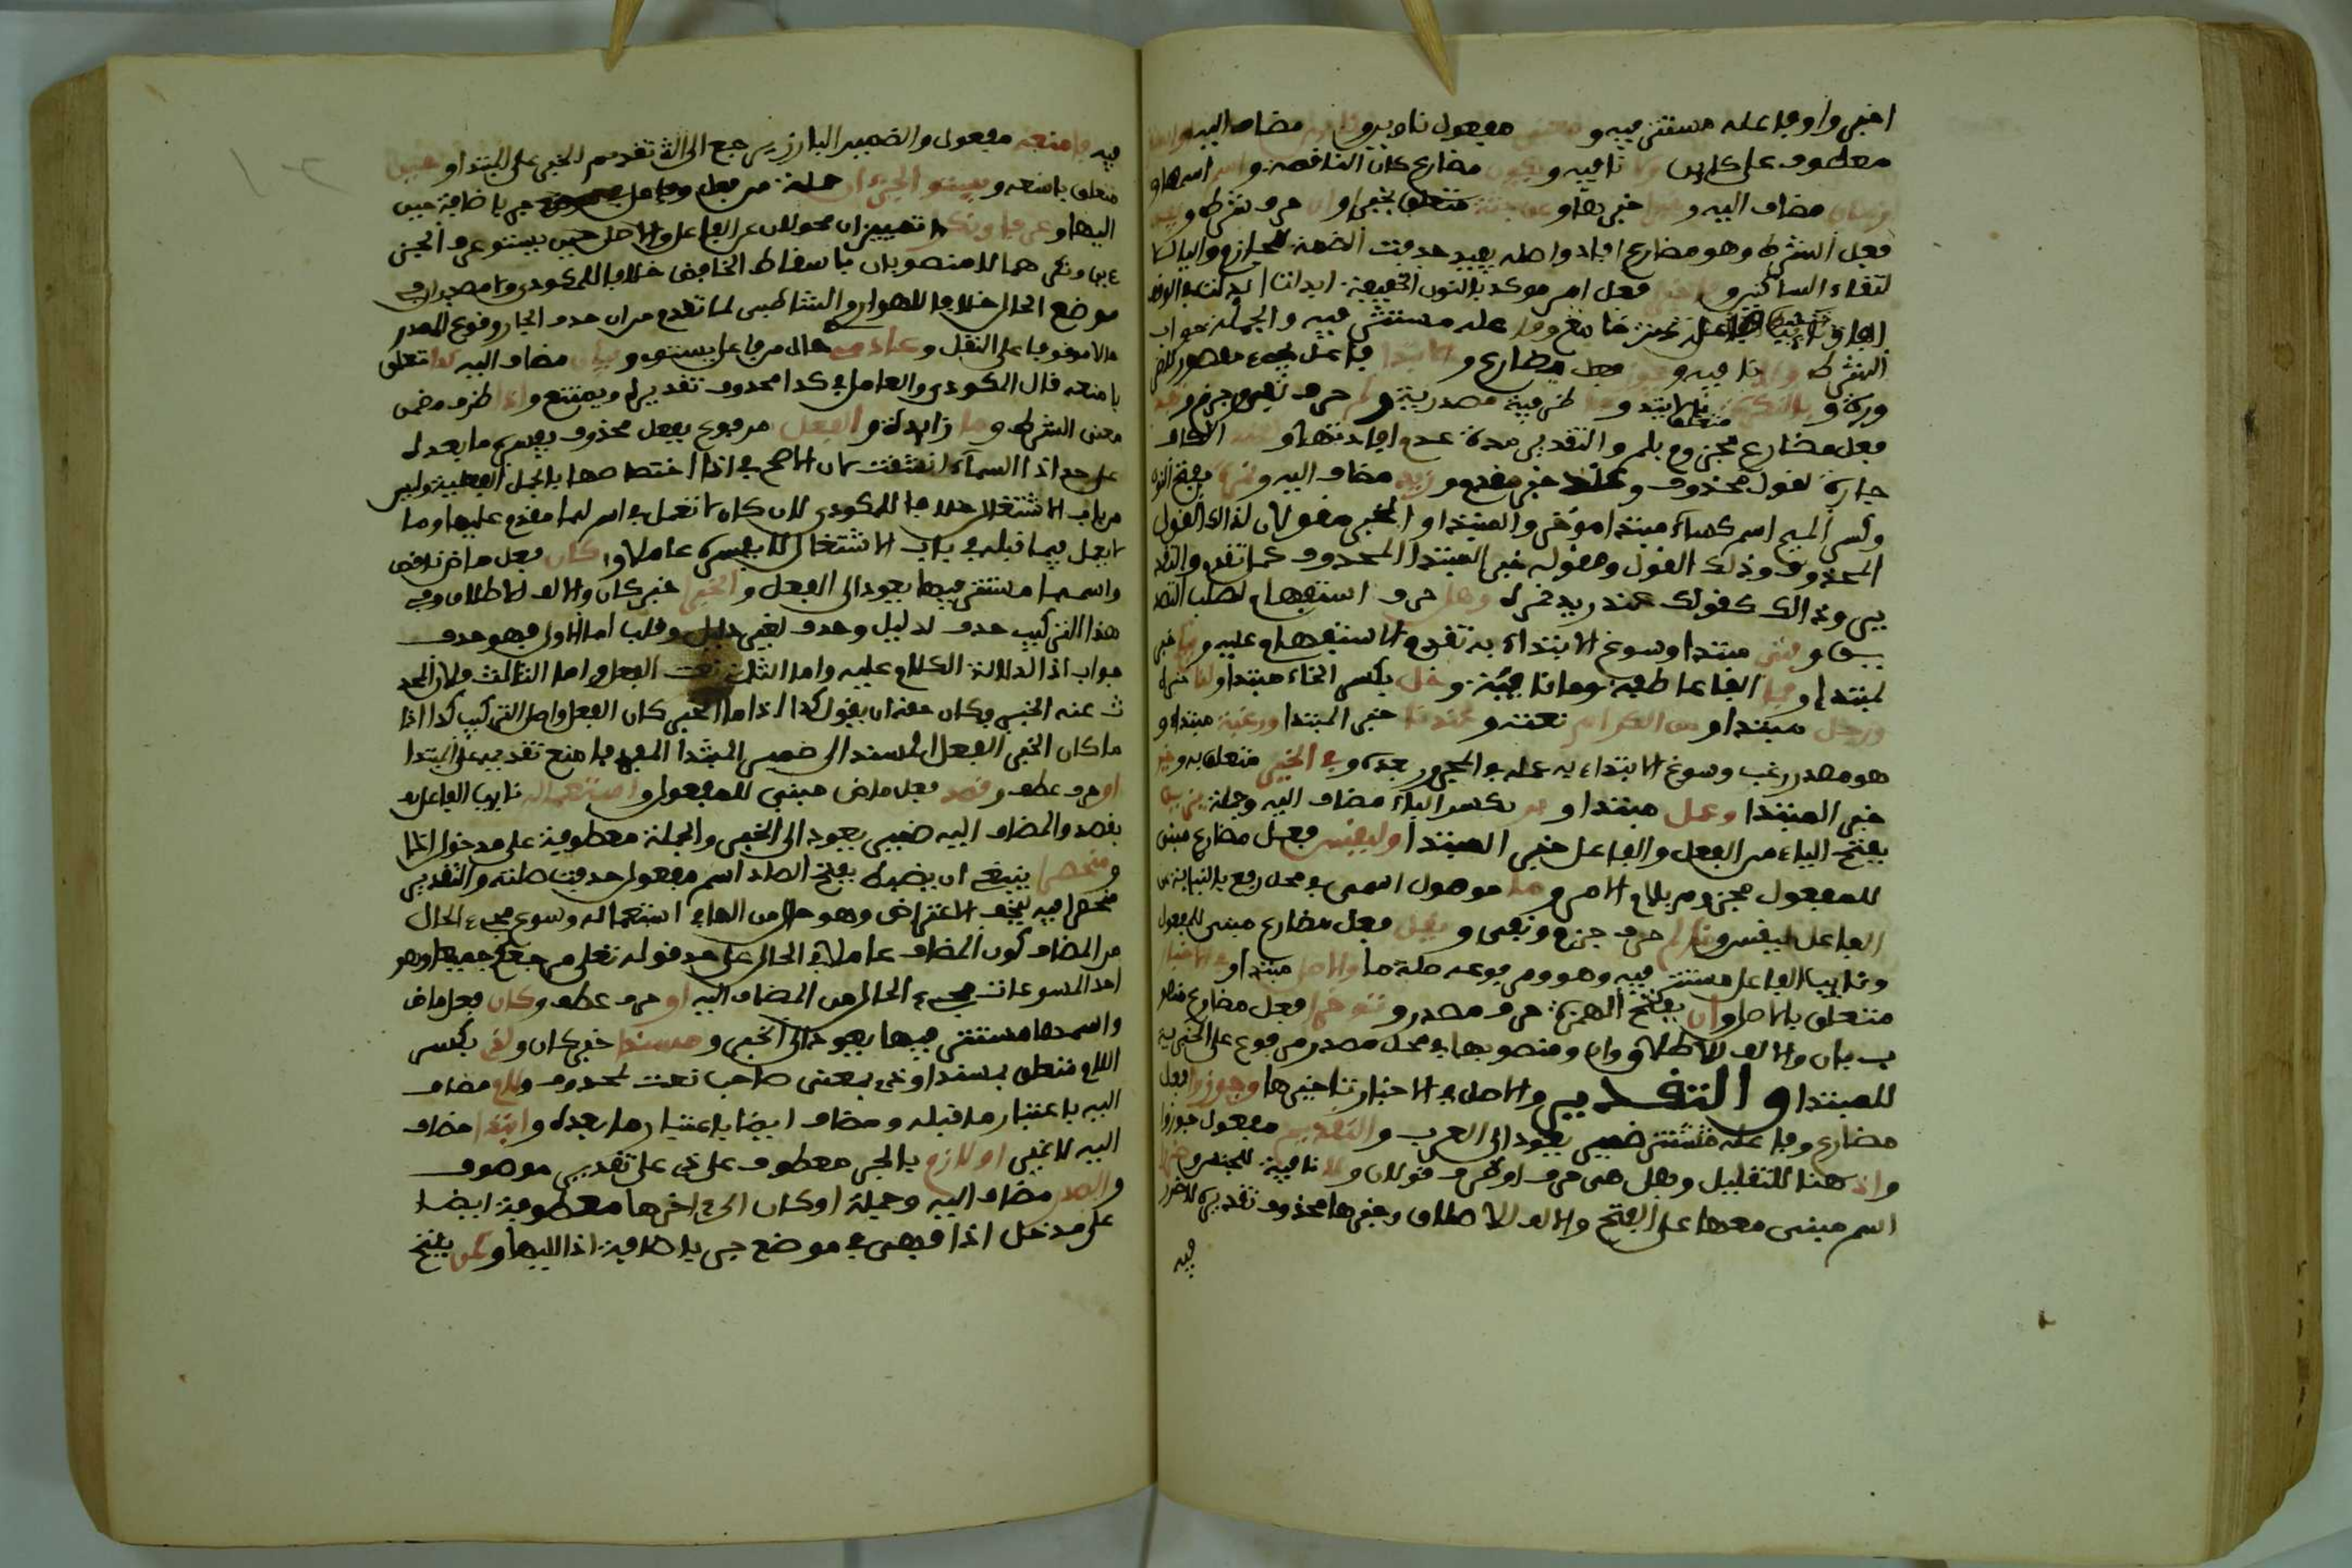 اخبروا وفاعله مستتر فيه و مفعول ناوين و مضاف اليه
معطوف على كاين ولا نافيه ويكون مضارع كان الناقصة واسم اسمها و
مضاف اليه و خبرها و عن جثة متعلق بخبرا وان حرف شرط و
فعل الشرط وهو مضارع افاد واصله يفيد حذفت الضمة للجازم والياء
لالتقاء الساكنين و فعل امر موكد بالنون الخفيفة
مستتر فيه والجملة جواب
الشرط ولا نافيه و يجوز فعل مضارع والابتدا فاعل يجوز
و بالنكرة متعلق بالابتدا وما ظرفية مصدرية ولم حرف نفي وجزم و
فعل مضارع مجزوم بلم والتقدير مدة عدم افادتها و الكاف
جارة لقول محذوف وعند خبر مقدم وزيد مضاف اليه ونمرة بفتح النون
وكسر الميم اسم كساء مبتدا موخر والمبتدا والخبر مقولان لذلك القول
المحذوف وذلك القول ومقوله خبر المبتدا المحذوف كما تقدم والتقد
ير وذالك كقولك عند زيد نمرة وهل حرف استفهام لطلب التصد
يق وفتى مبتدا وسوغ الابتداء به تقدم الاستفهام عليه وفيكم خبر
المبتدا وفما الفاء عاطفة وما نافية وخل بكسر الخاء مبتدا ولنا خبره
ورجل مبتدا ومن الكرام نعته وعندنا خبر المبتدا ورغبة مبتدا و
هو مصدر رغب وسوغ الابتداء به عمله في المجرور بعده وفي الخير متعلق به وخير
خبر المبتدا وعمل مبتدا وبر بكسر الباء مضاف اليه وجملة يزين
بفتح الياء من الفعل والفاعل خبر المبتدا وليقس فعل مضارع مبني
للمفعول مجزوم بلام الامر وما موصول اسمي في محل رفع بالنيابة عن
الفاعل ليقس ولم حرف جزم ونفي ويقل فعل مضارع مبني للمفعول
ونايب الفاعل مستتر فيه وهو ومرفوعه صلة ما والاصل مبتدا وفي الاخبار
متعلق بالاصل وان بفتح الهمزة حرف مصدر وتوخرا فعل مضارع منصو
ب بان والالف للاطلاق وان ومنصوبها في محل مصدر مرفوع على الخبرية
للمبتدا والتقدير والاصل في الاخبار تاخيرها وجوزوا فعل
مضارع وفاعله مستتر ضمير يعود الى العرب والتقديم مفعول جوزوا
واذ هنا للتعليل وهل هي حرف او ظرف قولان ولا نافية للجنس وضررا
اسم مبني معها على الفتح والالف للاطلاق وخبرها محذوف تقديره لا ضرر
فيه
فيه فامنعه مفعول والضمير البارز يرجع الى تقديم الخبر على المبتدا وحين
متعلق بامنعه ويستوي الجزءان جملة من فعل وفاعل في موضع جر باضافة حين
اليها وعرفا ونكرا تمييزان محولان عن الفاعل والاصل حين يستوي عرف الجزئين
ونكرهما لا منصوبان باسقاط الخافض خلافا للمكودي ولا مصدران في
موضع الحال خلافا للهواري والشاطبي لما تقدم من ان حذف الجار ووقوع المصدر
حالا موقوفا على النقل وعادمي حال من فاعل يستوي وبيان مضاف اليه كذا متعلق
بامنعه قال المكودي والعامل في كذا محذوف تقديره ويمتنع واذا ظرف مضمن
معنى الشرط وما زايدة والفعل مرفوع بفعل محذوف يفسره ما بعده
على حد اذا السماء انشقت لان الاصح في اذا اختصاصها بالجمل الفعلية وليس
من باب الاشتغال خلافا للمكودي لان كان لا تعمل في اسم لها مقدم عليها وما
لا يعمل فيما قبله في باب الاشتغال لا يفسر عاملا وكان فعل ماض ناقص
واسمها مستتر فيها يعود الى الفعل والخبر خبر كان والالف للاطلاق وفي
هذا التركيب حذف لدليل وحذف لغير دليل وقلب اما الاول فهو حذف
جواب اذا لدلالة الكلام عليه واما الثاني نعت الفعل واما الثالث فلان المحد
ث عنه الخبر وكان حقه ان يقول كذا اذا ما الخبر كان الفعل واصل التركيب كذا اذا
ما كان الخبر الفعل المسند الى ضمير المبتدا المفرد فامنع تقديمه على المبتدا
او حرف عطف وقصد فعل ماض مبني للمفعول واستعماله نايب الفاعل
بقصد والمضاف اليه ضمير يعود الى الخبر والجملة معطوفة على مدخول اذا
ومنحصرا ينبغي ان يضبط بفتح الصاد اسم مفعول حذفت صلته والتقدير
منحصرا فيه ليخف الاعتراض وهو حال من الهاء في استعماله وسوغ مجيء الحال
من المضاف كون المضاف عاملا في الحال على حد قوله تعلى مرجعكم جميعا وهو
احد المسوغات مجيء الحال من المضاف اليه او حرف عطف وكان فعل ماض
واسمها مستتر فيها يعود الى الخبر ومسندا خبر كان ولذي بكسر
اللام متعلق بمسندا وذي بمعنى صاحب نعت لمحذوف ولام مضاف
اليه باعتبار ما قبله ومضاف ايضا باعتبار ما بعده وابتدا مضاف
اليه لا غير او لازم بالجر معطوف على ذي على تقدير موصوف
والصدر مضاف اليه وجملة او كان الى اخرها معطوفة ايضا
على مدخل اذا فهي في موضع جر باضافة اذا اليها وكمن بفتح